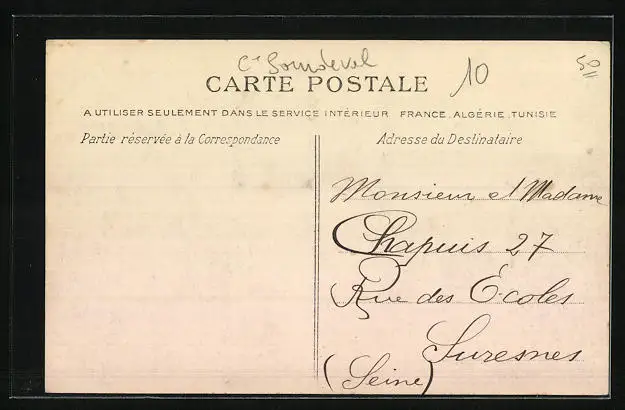 Cⁿ Sourdeval
10
50
CARTE POSTALE
A UTILISER SEULEMENT DANS LE SERVICE INTÉRIEUR FRANCE, ALGÉRIE, TUNISIE
Partie réservée à la Correspondance
Adresse du Destinataire
Monsieur et Madame
Chapuis 27
Rue des Écoles
Suresnes
(Seine)